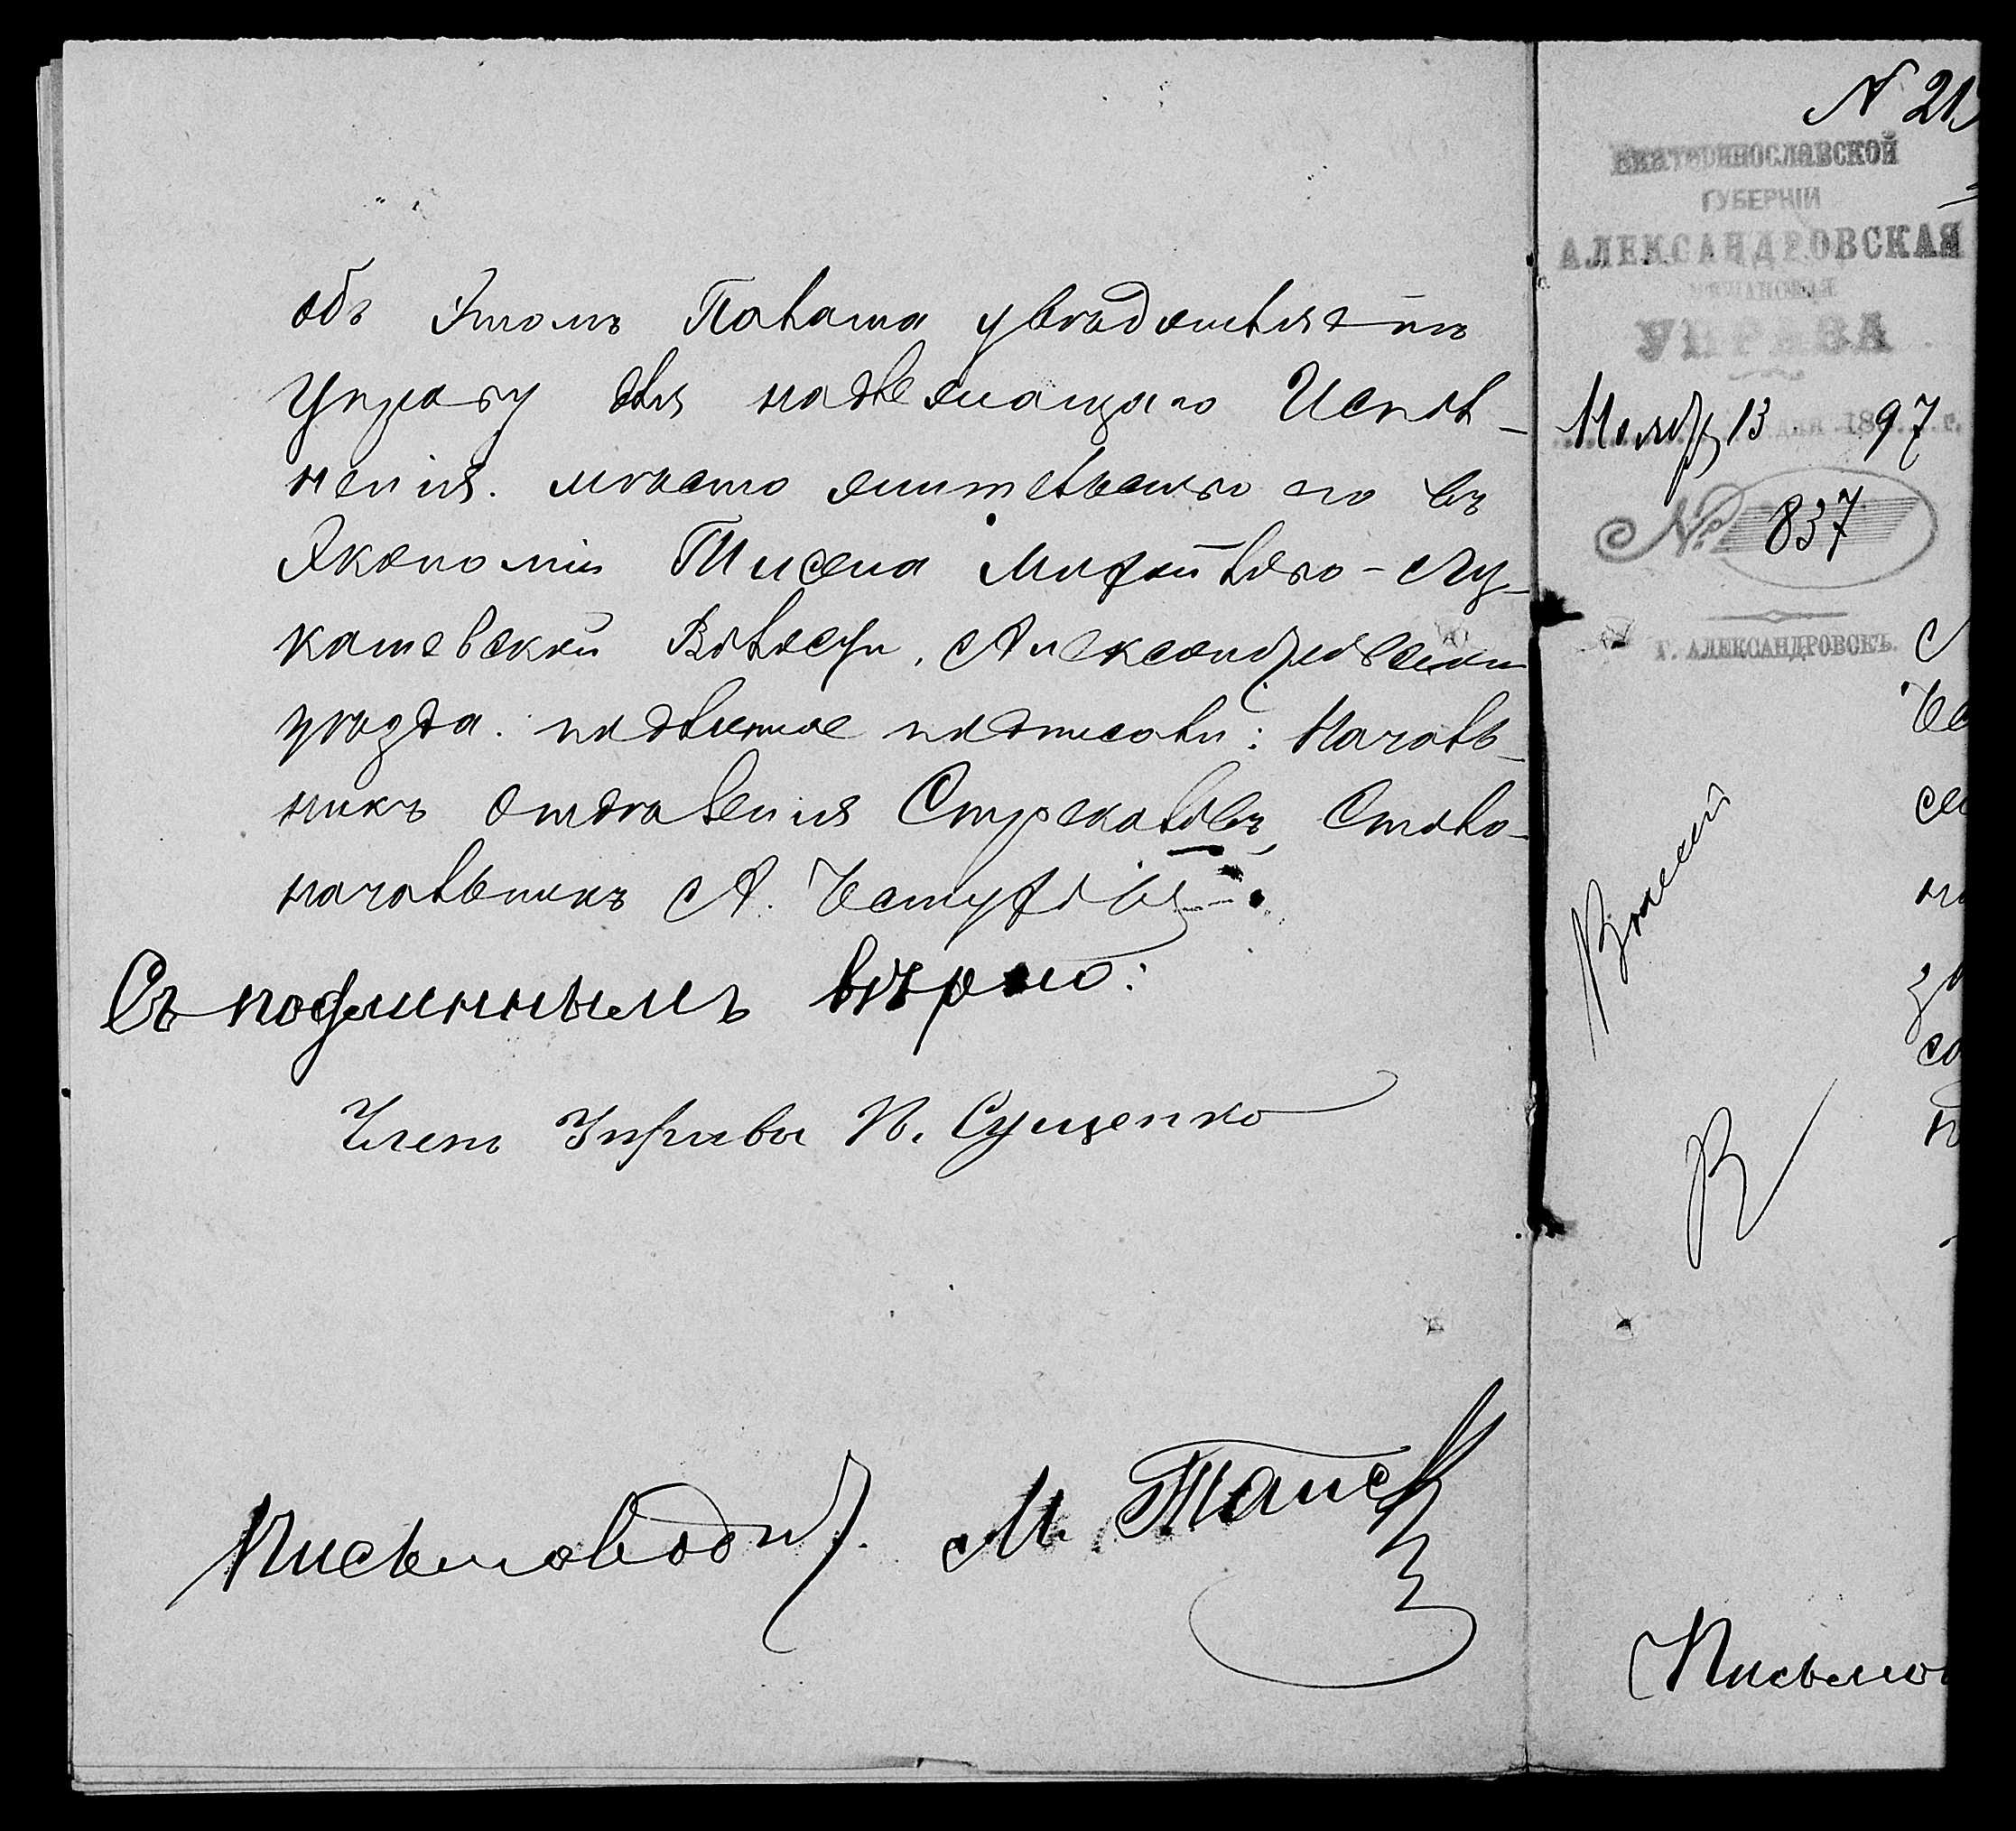 объ этомъ Палата увѣдомляетъ
Управу для надлежащаго Испол-
ненія. мѣсто жительство его въ
Экономіи Тисена Михайлово-Лу-
кашевской Волости, Александровскаго
уѣзда. подлинное подписали: Началь-
никъ отдѣленія Стрекаловъ, Столо-
начальникъ А.
Съ подлиннымъ вѣрно:
Членъ Управы П. Сущенко
Письмоводит. М.
N 21
Екатеринославской
ГУБЕРНІИ
АЛЕКСАНДРОВСКАЯ
МѢЩАНСКАЯ
УПРАВА
Ноябр 13 дня 1897 г.
№ 837
Г. АЛЕКСАНДРОВСКЪ.
Письмо